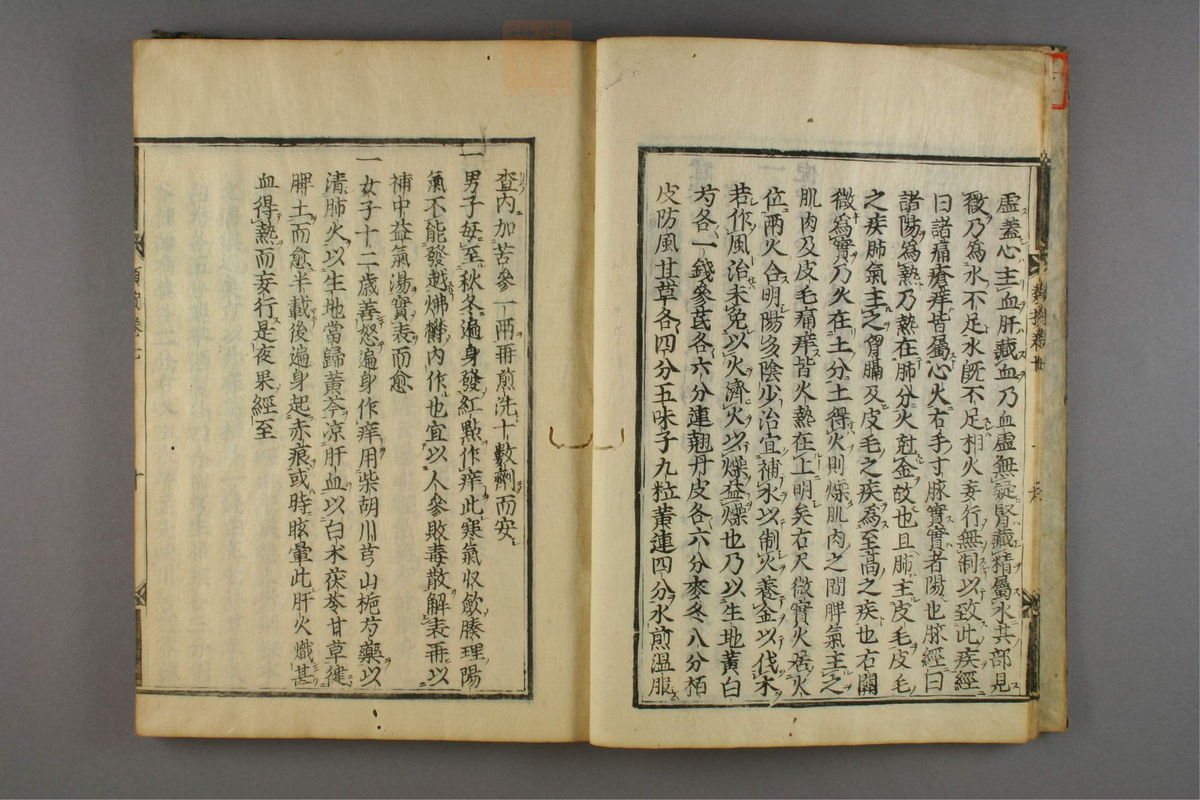 虛蓋心主血肝藏血乃血虛無疑腎藏精屬水其部見
微乃為水不足水既不足相火妄行無制以致此疾經
曰諸痛瘡痒皆屬心火右手寸脉實實者陽也脉經曰
諸陽為熱乃熱在肺分火尅金故也且肺主皮毛皮毛
之疾肺氣主之胷膈及皮毛之疾為至高之疾也右關
微為實乃火在土分土得火則燥肌肉之間脾氣主之
肌肉及皮毛痛痒皆火熱在上明矣右尺微實火居火
位兩火合明陽多陰少治宜補水以制火養金以伐木
若作風治未免以火濟火以燥益燥也乃以生地黃白
芍各一錢參芪各六分連翹丹皮各六分麥冬八分栢
皮防風甘草各四分五味子九粒黃連四分水煎温服
查内加苦參一兩再煎洗十數劑而安
一男子每至秋冬遍身發紅點作痒此寒氣収斂腠理陽
氣不能發越怫欝内作也宜以人參敗毒散解表再以
補中益氣湯實表而愈
一女子十二歲善怒遍身作痒用柴胡川芎山梔芍藥以
清肺火以生地當歸黃芩凉肝血以白木茯苓甘草健
脾土而愈半載後遍身起赤痕或時眩暈此肝火熾甚
血得熱而妄行是夜果經至